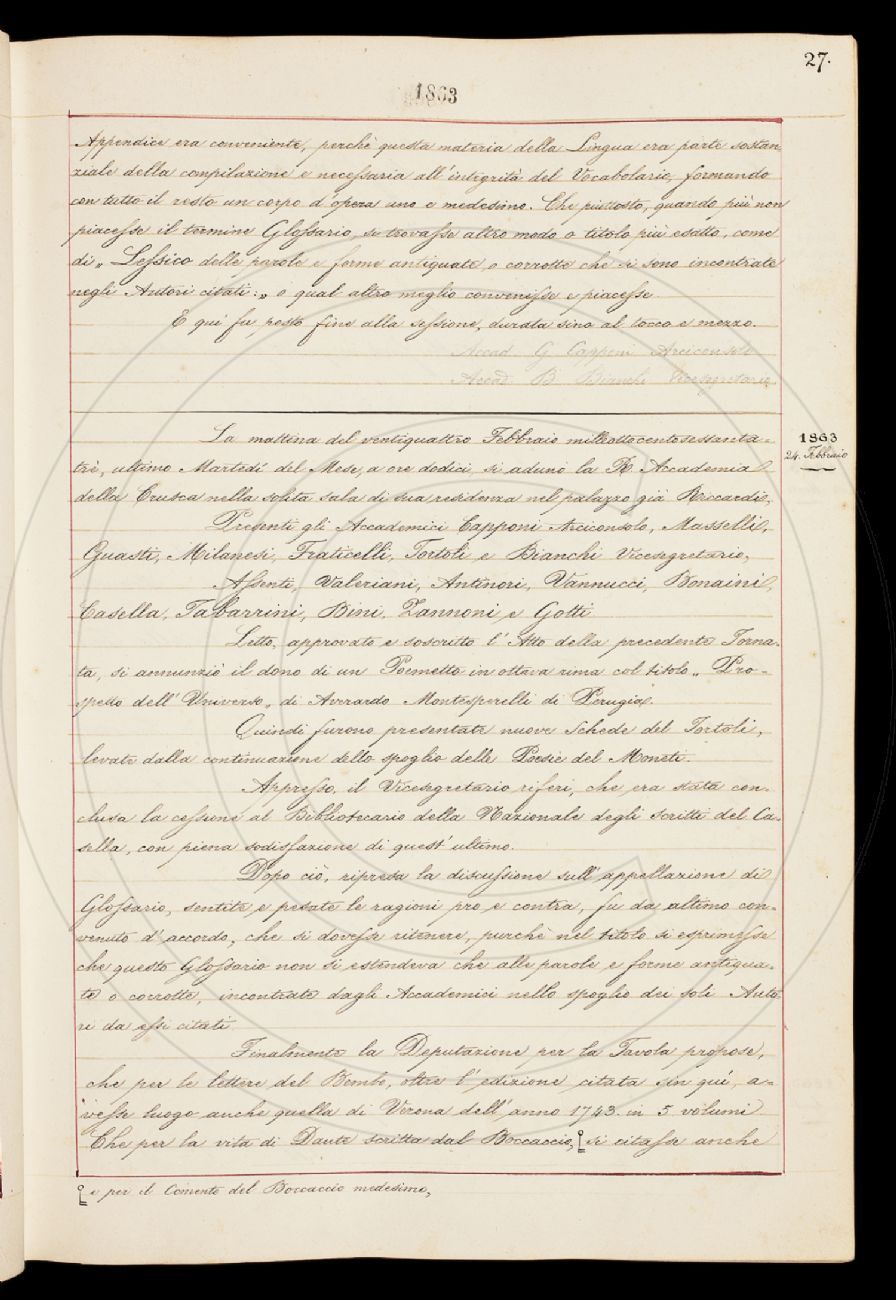 27.
1863
Appendice era conveniente, perchè questa materia della Lingua era parte sostan
ziale della compilazione e necessaria all'integrità del Vocabolario, formando
con tutto il resto un corpo d'opera uno e medesimo. Che piuttosto, quando più non
piacesse il termine Glossario, se trovasse altro modo o titolo più esatto, come
di „ Lessico delle parole e forme antiquate, o corrotte che si sono incontrate
negli Autori citati: „ o qual altro meglio convenisse e piacesse.
E qui fu posto fine alla sessione, durata sino al tocco e mezzo.
Accad. G. Capponi Arciconsolo
Accad. B. Bianchi Vicesegretario
La mattina del ventiquattro Febbraio milleottocentosessanta-
trè, ultimo Martedì del Mese, a ore dodici, si adunò la R. Accademia
della Crusca nella solita sala di sua residenza nel palazzo già Riccardi.
1863
24. Febbraio
Presenti gli Accademici Capponi Arciconsolo, Masselli,
Guasti, Milanesi, Fraticelli, Tortoli, e Bianchi Vicesegretario,
Assenti, Valeriani, Antinori, Vannucci, Bonaini,
Casella, Tabarrini, Bini, Zannoni, e Gotti.
Letto, approvato e soscritto l'Atto della precedente Torna-
ta, si annunziò il dono di un Poemetto in ottava rima col titolo „ Pro-
spetto dell'Universo „ di Averardo Montesperelli di Perugia.
Quindi furono presentate nuove Schede del Tortoli,
levate dalla continuazione dello spoglio delle Poesie del Moneti.
Appresso, il Vicesegretario riferì, che era stata con-
clusa la cessione al Bibliotecario della Nazionale degli scritti del Ca-
sella, con piena sodisfazione di quest'ultimo.
Dopo ciò, ripresa la discussione sull'appellazione di
Glossario, sentite e pesate le ragioni pro e contra, fu da ultimo con-
venuto d'accordo, che si dovesse ritenere, purchè nel titolo si esprimesse
che questo Glossario non si estendeva che alle parole e forme antiqua-
te o corrotte, incontrate dagli Accademici nello spoglio dei soli Auto-
ri da essi citati.
Finalmente la Deputazione per la Tavola propose,
che per le lettere del Bembo, oltre l'edizione citata sin quì, a-
vesse luogo anche quella di Verona dell'anno 1743. in 5 volumi.
Che per la vita di Dante scritta dal Boccaccio, si citasse anche
e per il Comento del Boccaccio medesimo,